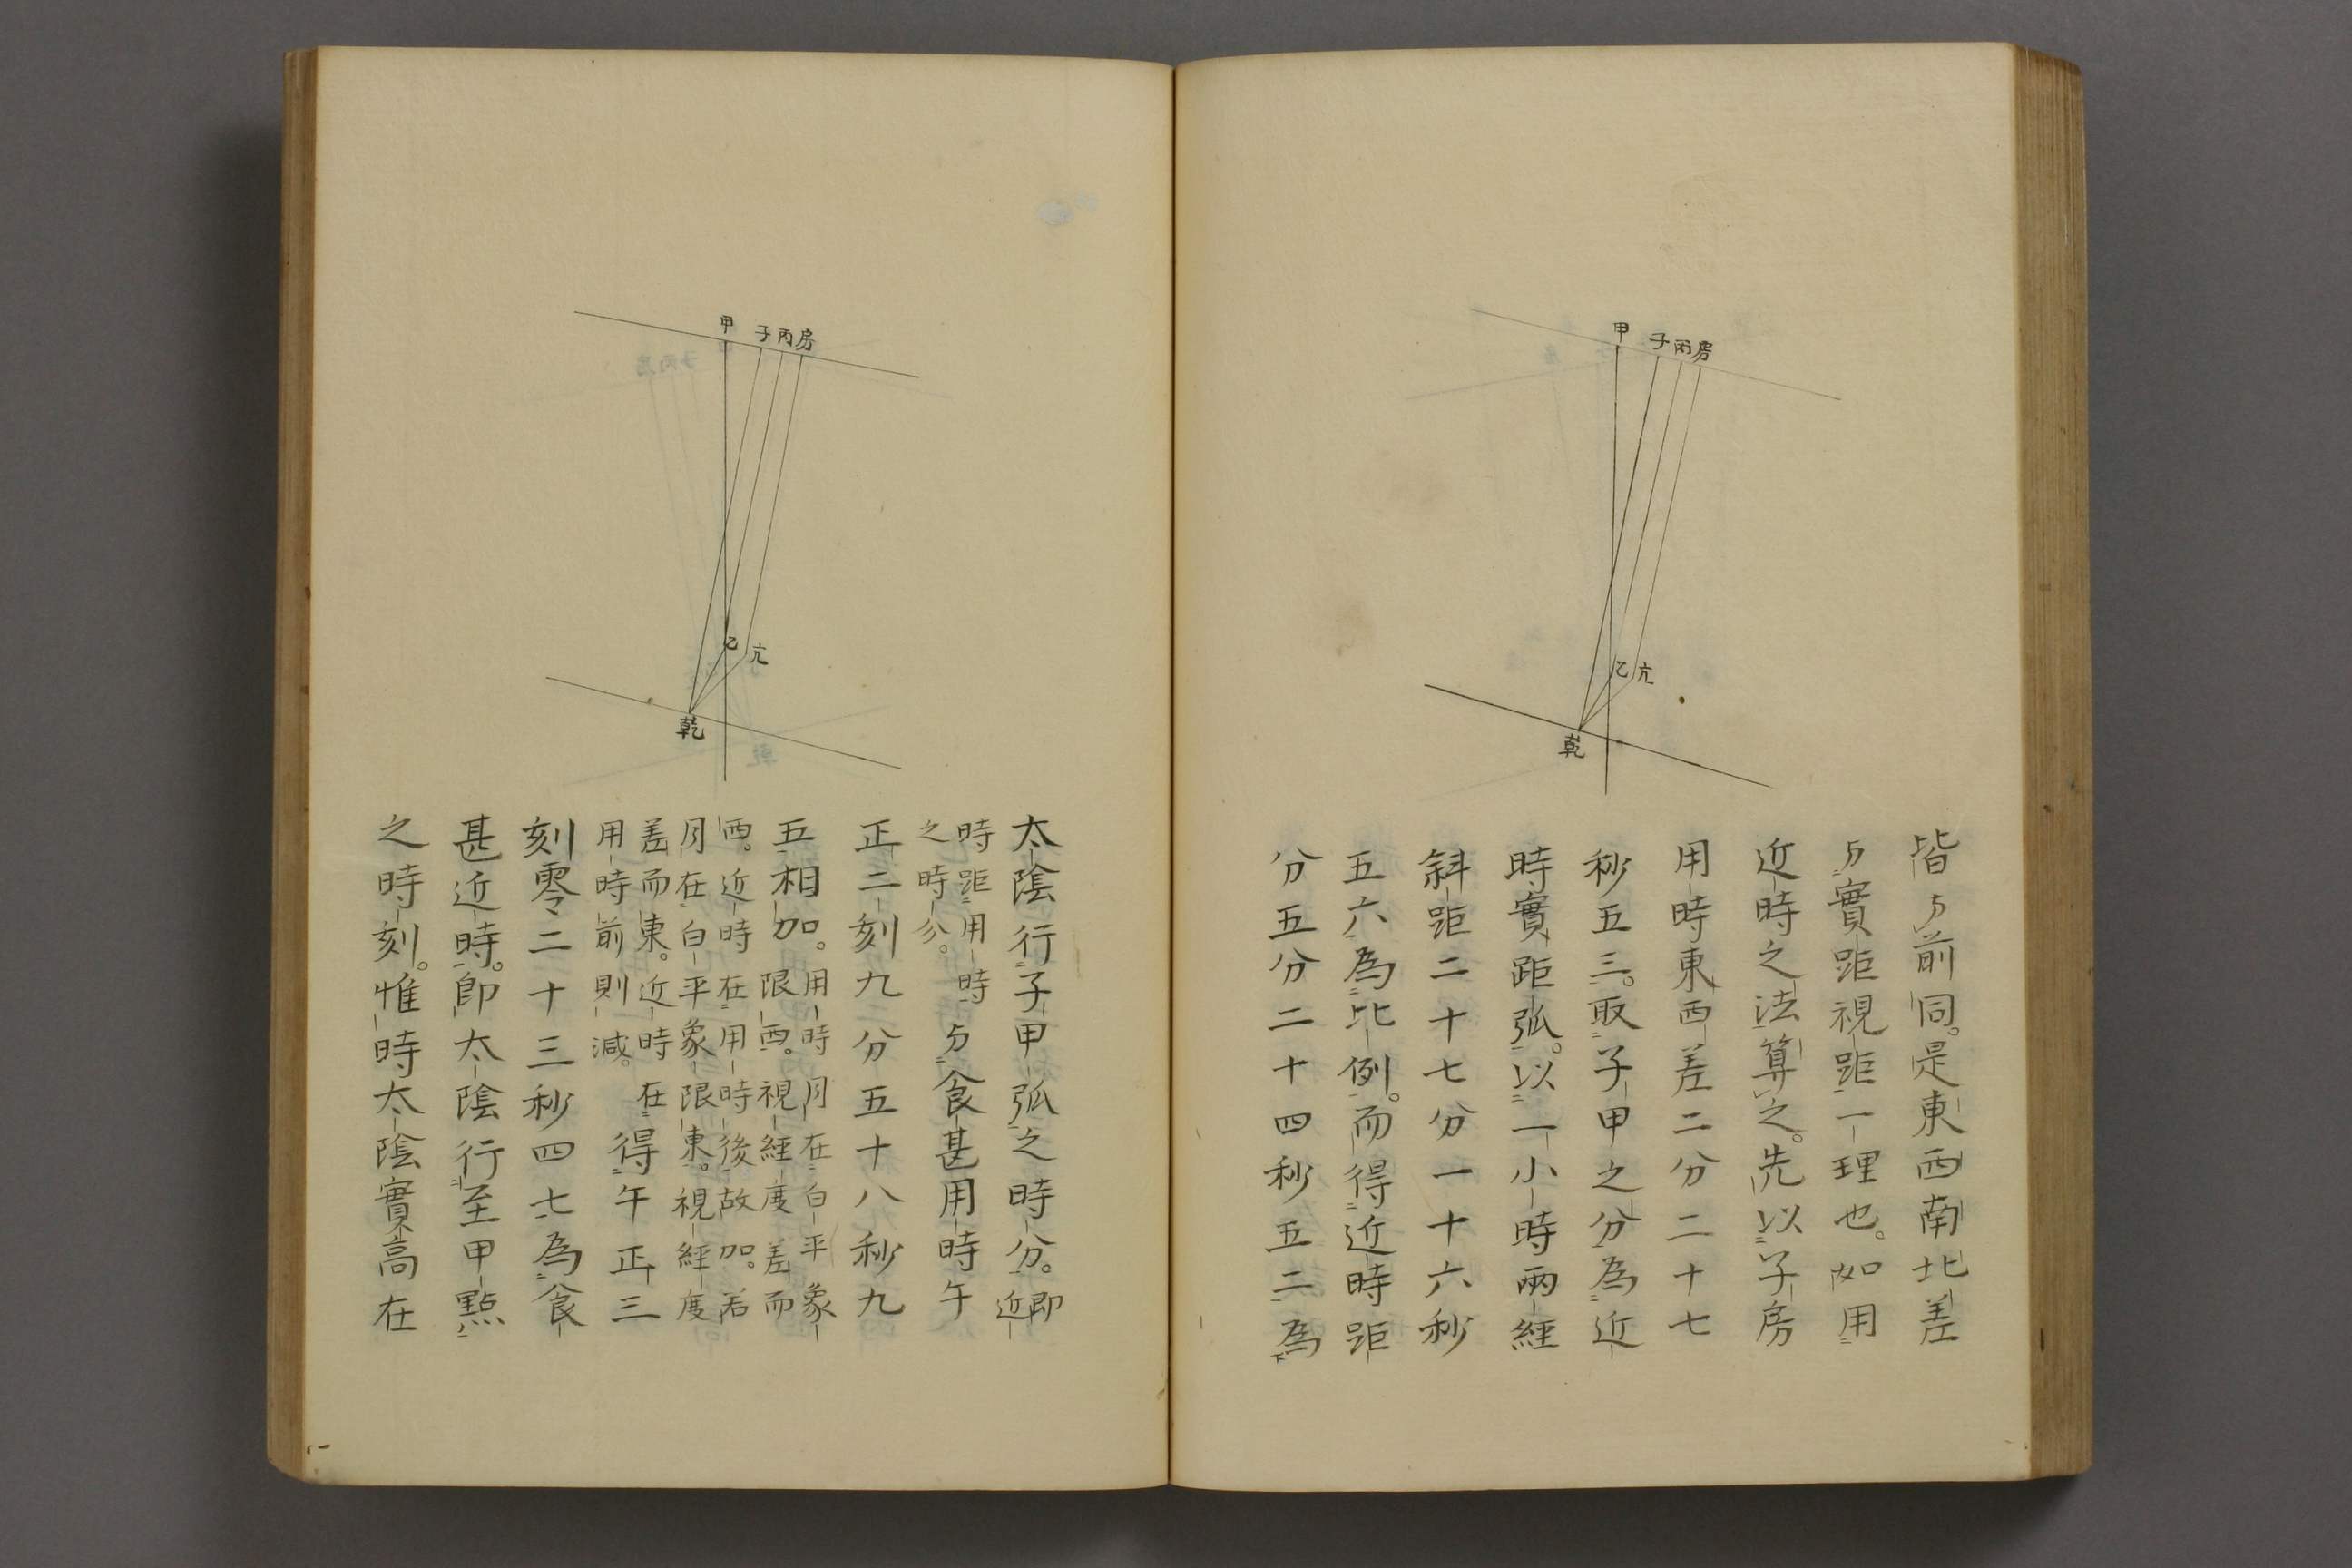 甲 子 丙 房
乙 亢
乾
皆与前同。是東西南北差
与實距視距一理也。如用
近時之法算之。先以子房
用時東西差二分二十七
秒五三。取子甲之分為近
時實距弧。以一小時兩經
斜距二十七分一十六秒
五六為比例。而得近時距
分五分二十四秒五二為
甲 子 丙 房
乙 亢
乾
太陰行子甲弧之時分。即近
時距用時
之時分。
与食甚用時午
正二刻九分五十八秒九
五相加。
用時月在白平象
限西。視經度差而
西。近時在用時後故加。若
月在白平象限東。視經度
差而東。近時在
用時前則減。
得午正三
刻零二十三秒四七為食
甚近時。即太陰行至甲點
之時刻。惟時太陰實高在